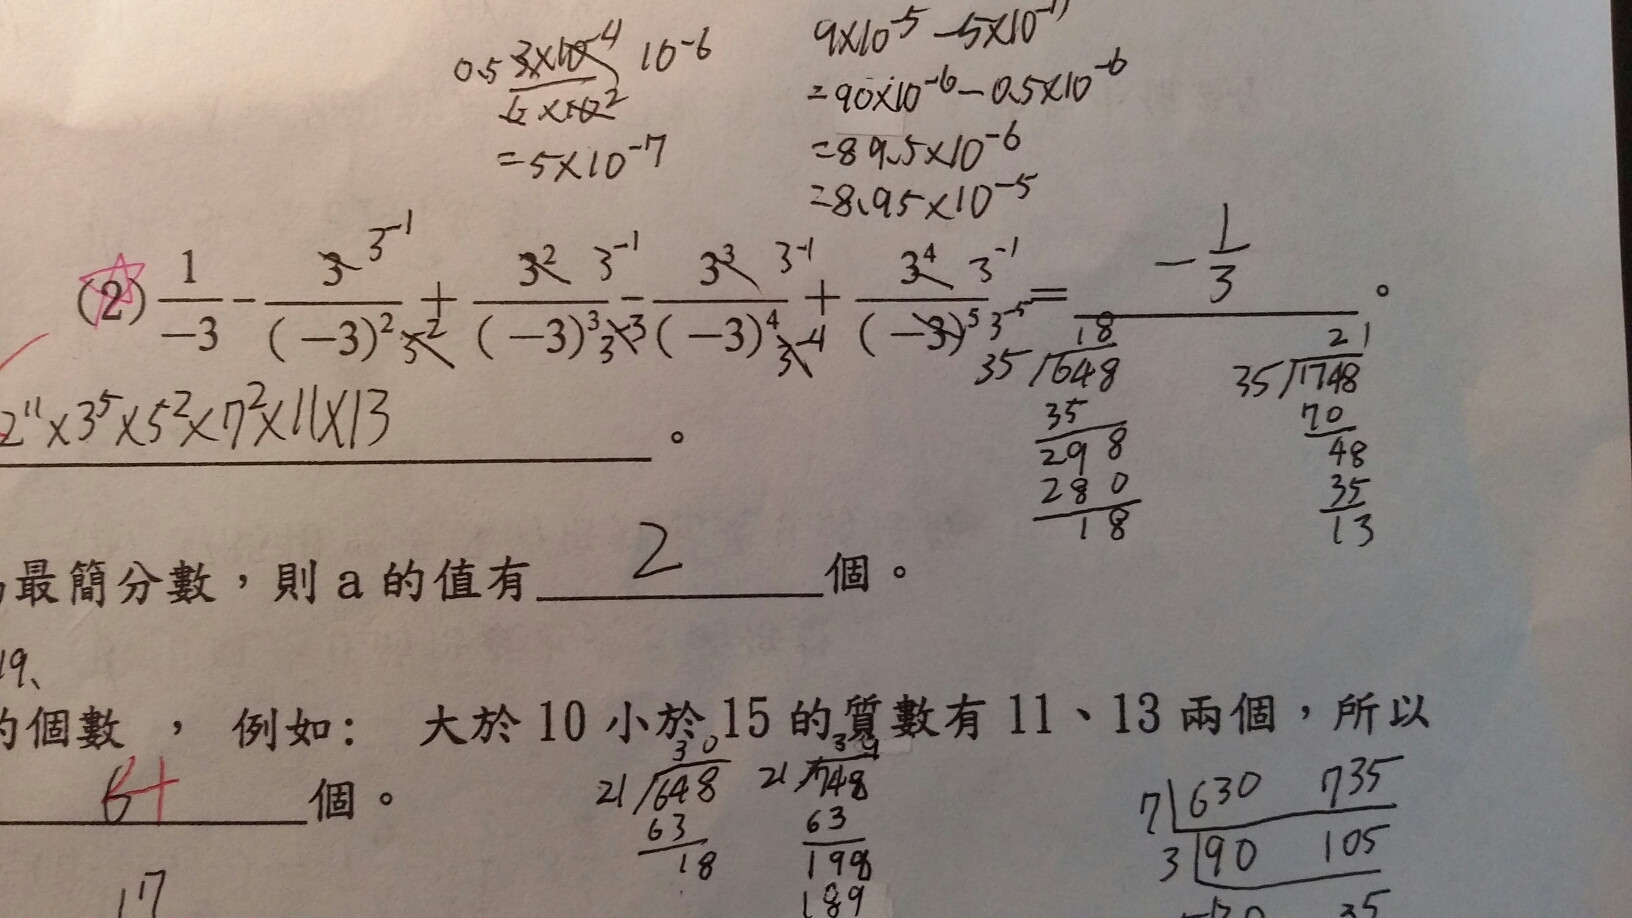 0.5 3×10⁻⁴ 10⁻⁶
6×10²
=5×10⁻⁷
9×10⁻⁵-5×10⁻⁷
=90×10⁻⁶-0.5×10⁻⁶
=89.5×10⁻⁶
=8.95×10⁻⁵
(2) 1/-3 - 3/(-3)² + 3²/(-3)³ - 3³/(-3)⁴ + 3⁴/(-3)⁵ = -1/3 。
3⁻¹ 3⁻¹ 3⁻¹ 3⁻¹
2¹¹×3⁵×5²×7²×11×13 。
18
35 648
35
298
280
18
21
35 1748
70
48
35
13
最簡分數，則a的值有 2 個。
19、
的個數 ， 例如: 大於10小於15的質數有11、13兩個，所以
個。
30
21 648
63
18
21 748
63
198
189
7 630 735
3 90 105
35
17